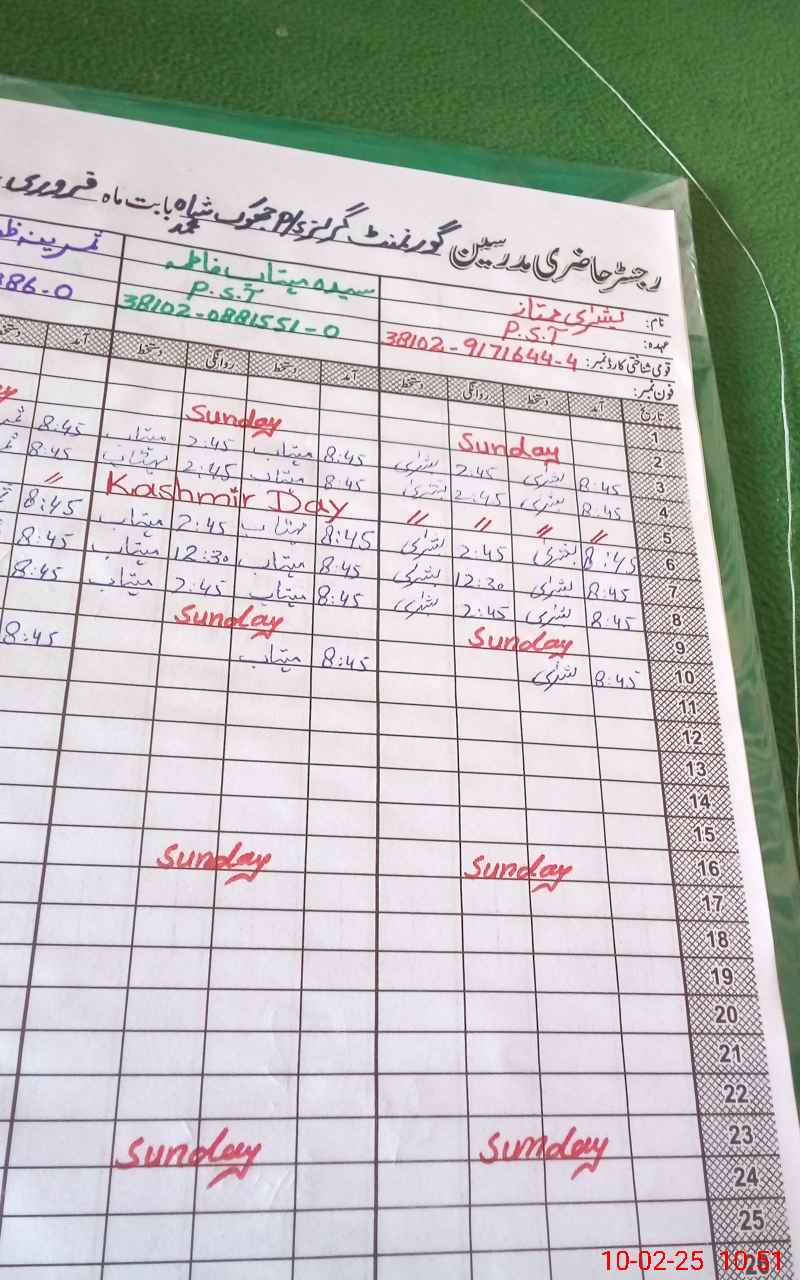 رجسٹر حاضری مدرسین گورنمنٹ گرلز P/S جھوک شاہ محمد بابت ماہ فروری
نام: بشریٰ ممتاز
عہدہ: P.S.T
قومی شناختی کارڈ نمبر: 38102-9171644-4
فون نمبر:
سیدہ مہتاب فاطمہ
P.S.T
38102-0881551-0
386-0
تاریخ آمد دستخط روانگی دستخط آمد دستخط روانگی دستخط آمد
1
2 Sunday Sunday
3 8:45 بشریٰ 2:45 بشریٰ 8:45 مہتاب 2:45 مہتاب 8:45
4 8:45 بشریٰ 2:45 بشریٰ 8:45 مہتاب 2:45 مہتاب 8:45
5 〃 〃 〃 〃 Kashmir Day 〃
6 8:45 بشریٰ 2:45 بشریٰ 8:45 مہتاب 2:45 مہتاب 8:45
7 8:45 بشریٰ 12:30 بشریٰ 8:45 مہتاب 12:30 مہتاب 8:45
8 8:45 بشریٰ 2:45 بشریٰ 8:45 مہتاب 2:45 مہتاب 8:45
9 Sunday Sunday
10 8:45 بشریٰ 8:45 مہتاب 8:45
11
12
13
14
15
16 Sunday Sunday
17
18
19
20
21
22
23 Sunday Sunday
24
25
26
10-02-25 10:51